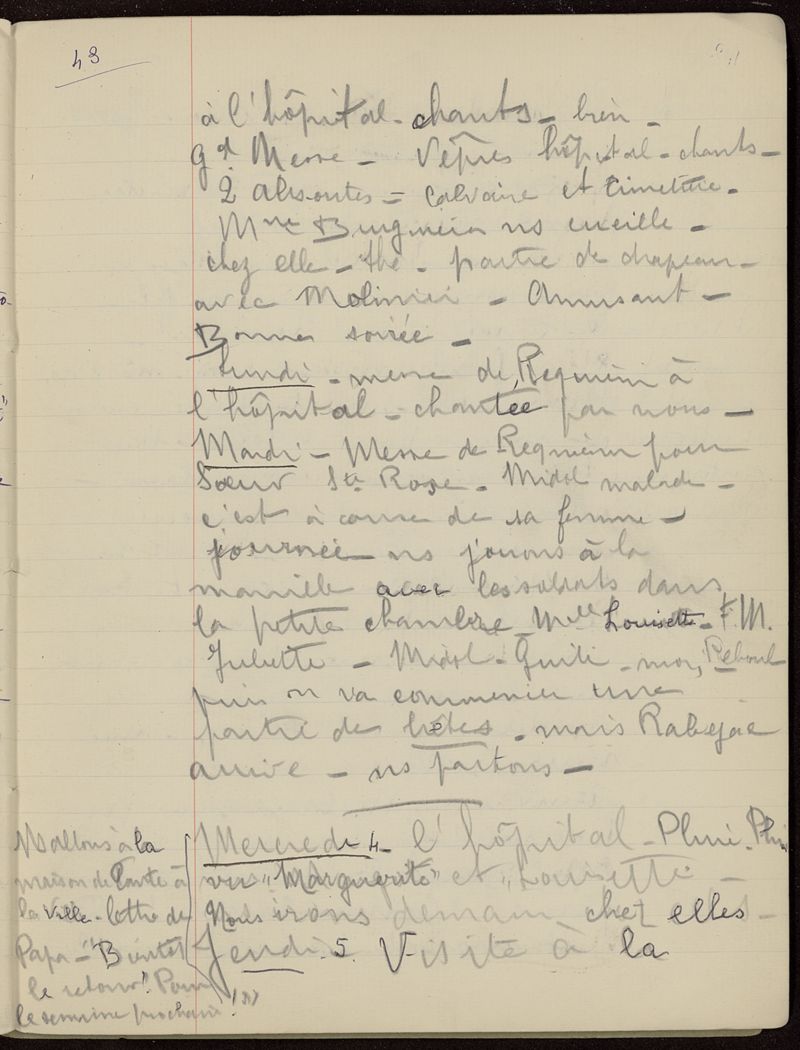 49
à l'hôpital - chants - bien -
gd Messe - Vêpres hôpital - chants -
2 absoutes = calvaire et cimetière -
Mme ns cueille -
chez elle - thé - partie de chapeau -
avec Molinier - Amusant -
Bonne soirée -
Lundi - messe de Requiem à
l'hôpital - chantée par nous -
Mardi - Messe de Requiem pour
Soeur Ste Rose - Midol malade -
c'est à cause de sa femme -
journée ns jouons à la
manille avec les soldats dans
la petite chambre Mlle Louisette - F. M.
Juliette - Midol - - moi, Reboul
puis on va commencer une
partie de bêtes - mais Rabejac
arrive - ns partons -
Mercredi 4 - l'hôpital - Pluie - Pluie
vu "Marguerite" et "Louisette" -
Nous irons demain chez elles -
Jeudi 5. Visite à la
Ns allons à la
maison de Tante à
la ville - lettre de
Papa - "Bientôt
le retour! Pour
la semaine prochaine!"